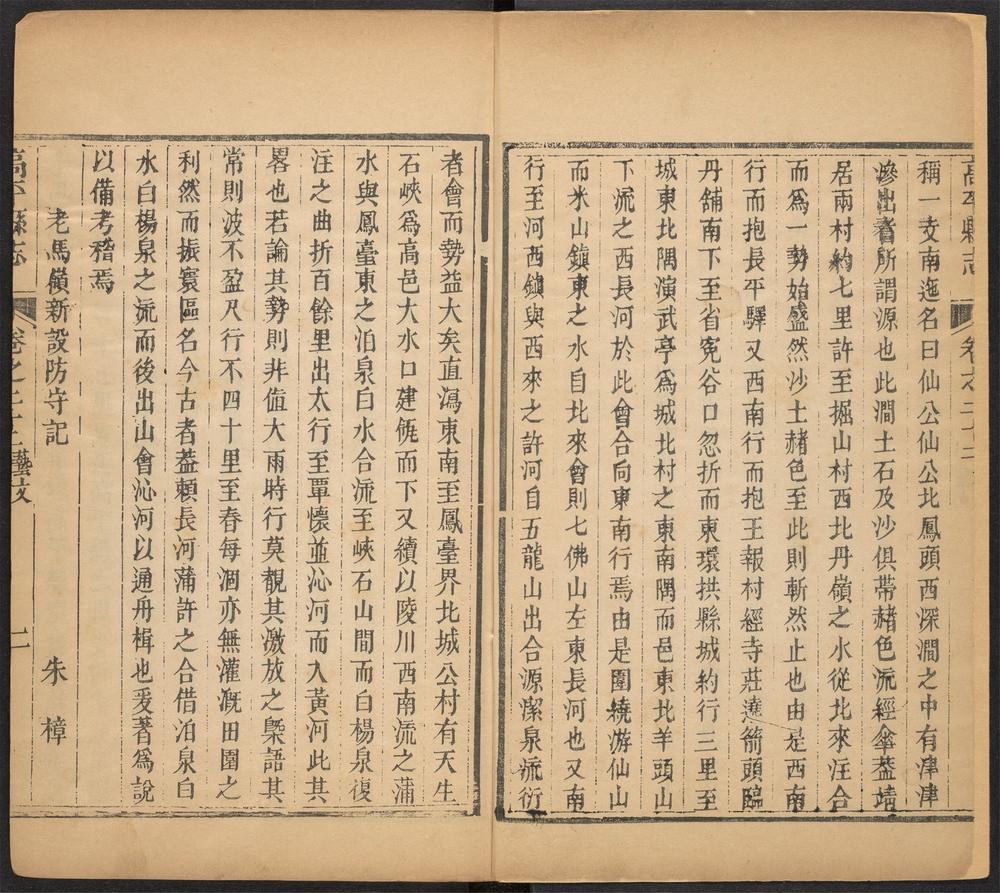 高平縣志 卷之二十二
稱一支南迤名曰仙公仙公北鳳頭西深澗之中有津津
滲出者所謂源也此澗土石及沙俱帶赭色流經傘葢靖
居兩村約七里許至掘山村西北丹嶺之水從北來注合
而爲一勢始盛然沙土赭色至此則斬然止也由是西南
行而抱長平驛又西南行而抱王報村經寺莊遶箭頭臨
丹舖南下至省寃谷口忽折而東環拱縣城約行三里至
城東北隅演武亭爲城北村之東南隅而邑東北羊頭山
下流之西長河於此會合向東南行焉由是圍繞游仙山
而米山鎮東之水自北來會則七佛山左東長河也又南
行至河西鎮與西來之許河自五龍山出合源潔泉流衍
者會而勢益大矣直瀉東南至鳳臺界北城公村有天生
石峽爲高邑大水口建瓴而下又續以陵川西南流之蒲
水與鳳臺東之泊泉白水合流至峽石山間而白楊泉復
注之曲折百餘里出太行至覃懷並沁河而入黃河此其
畧也若論其勢則非值大雨時行莫覩其激放之槩語其
常則波不盈尺行不四十里至春每涸亦無灌溉田園之
利然而振寰區名今古者葢頼長河蒲許之合借泊泉白
水白楊泉之流而後出山會沁河以通舟楫也爰著爲說
以備考稽焉
老馬嶺新設防守記 朱樟
高平縣志 卷之二十二藝文